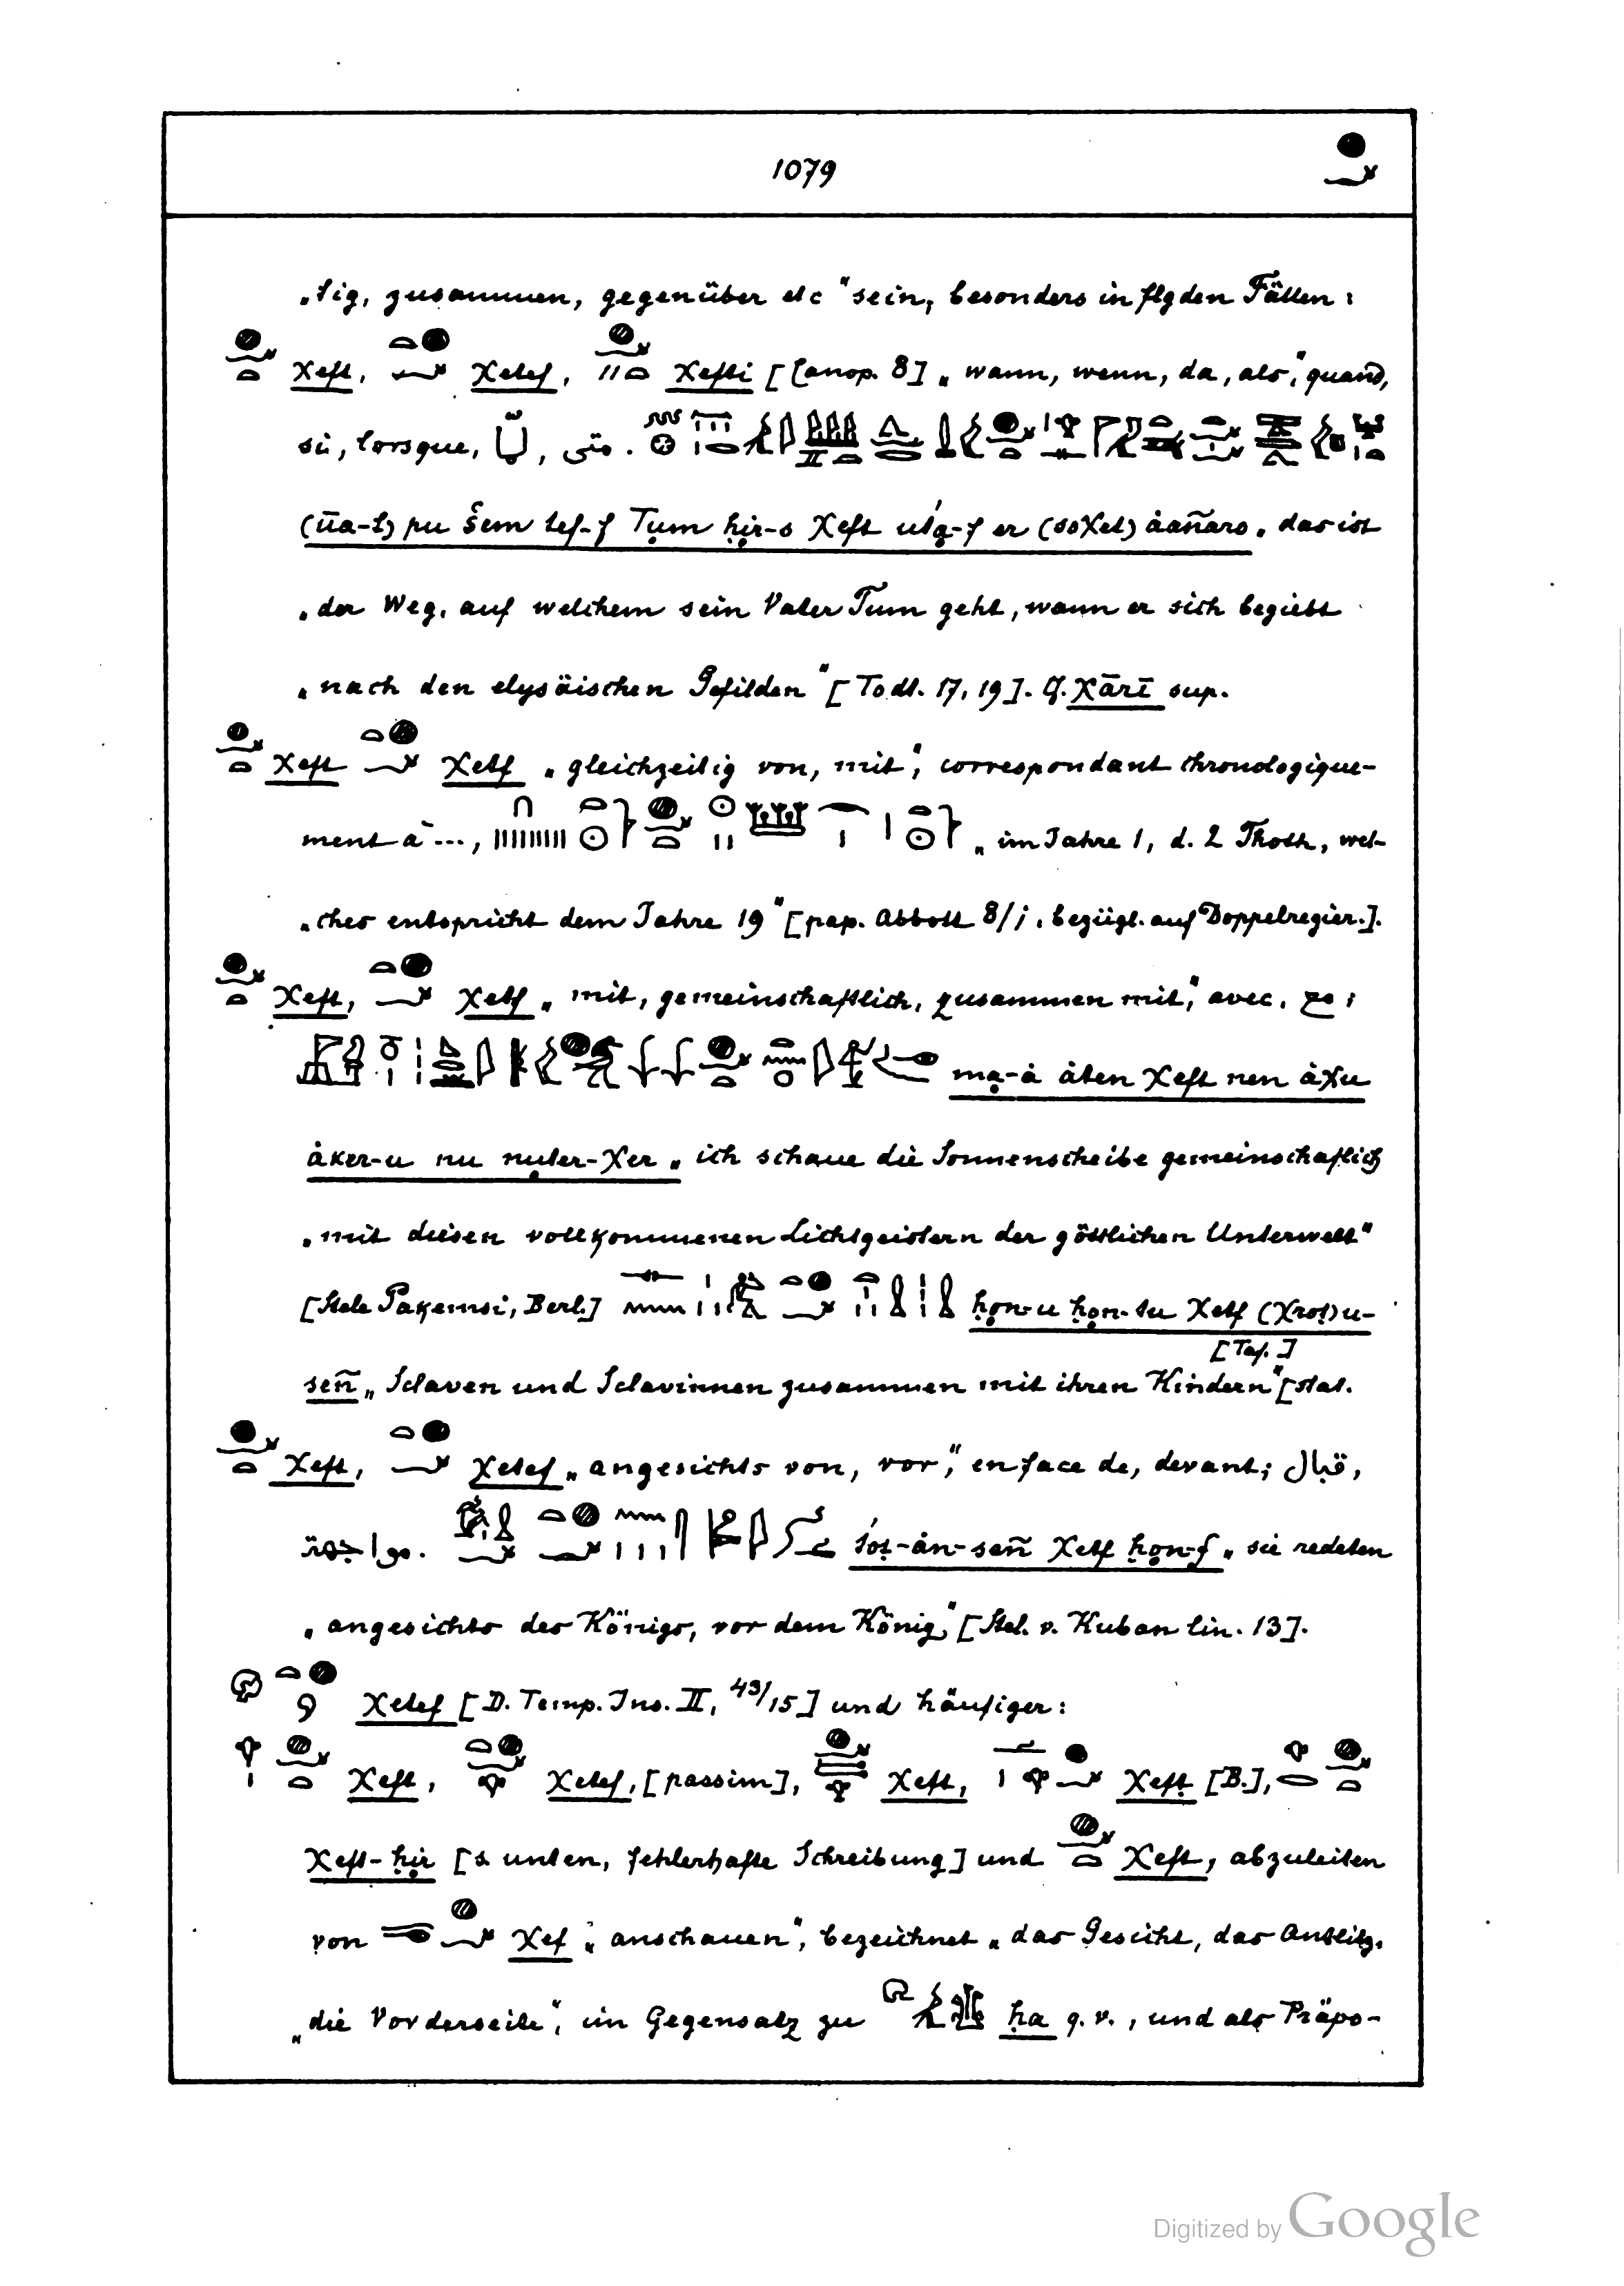 1079
„tig, zusammen, gegenüber etc“ sein, besonders in flgden Fällen:
χeft, χetef, χefti [Canop. 8] „wann, wenn, da, als“, quand,
si, lorsque, لمّا, متى.
(ūa-t) pu šem tef-f Tum ḥir-s χeft uťa-f er (soχet) àañaro „das ist
„der Weg, auf welchem sein Vater Tum geht, wann er sich begiebt
„nach den elysäischen Gefilden“ [Todt. 17, 19]. Cf. χārī sup.
χeft χetf „gleichzeitig von, mit“, correspondant chronologique-
ment à ..., „im Jahre 1, d. 2 Thoth, wel-
„ches entspricht dem Jahre 19“ [pap. Abbott 8/1, bezügl. auf Doppelregier.].
χeft, χetf „mit, gemeinschaftlich, zusammen mit“, avec, مع;
ma-à àten χeft nen àχu
àker-u nu nuter-χer „ich schaue die Sonnenscheibe gemeinschaftlich
„mit diesen vollkommenen Lichtgeistern der göttlichen Unterwelt“
[Stele Pakemsi, Berl.] ḥon-u ḥon-tu χetf (χroṭ)u-
señ „Sclaven und Sclavinnen zusammen mit ihren Kindern“ [stat.
[Taf.]
χeft, χetef „angesichts von, vor“, en face de, devant; قبال,
مواجهة. ťoṭ-àn-señ χetf ḥon-f „sie redeten
„angesichts des Königs, vor dem König“, [Stel. v. Kuban lin. 13].
χetef [D. Temp. Ins. II, 43/15] und häufiger:
χeft, χetef, [passim], χeft, χefṭ [B.],
χeft-ḥir [s. unten, fehlerhafte Schreibung] und χeft, abzuleiten
von χef „anschauen“, bezeichnet „das Gesicht, das Antlitz,
„die Vorderseite“, im Gegensatz zu ḥa q. v., und als Präpo-
Digitized by Google